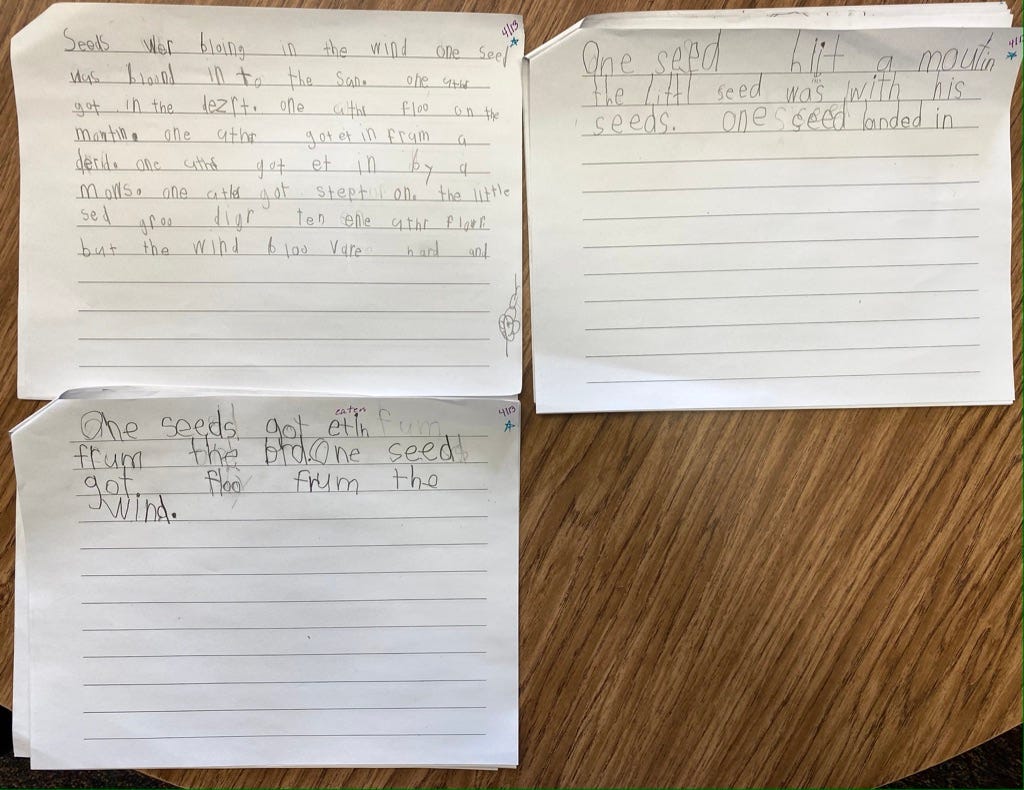 4/13
Seeds wer bloing in the wind one seed
was bloond in to the san. one uthr
got in the dezrt. one uthr floo on the
montin. one uthr got et in frum a
derid. one uthr got et in by a
mows. one uthr got stept on. the little
sed groo digr ten ene uthr flowr
but the wind bloo vare hard and
4/13
One seed hit a moutin
the littl seed was with his
seeds. one seed landed in
4/13
eaten
One seeds got etin fum
frum the brd. One seed
got floo frum the
wind.